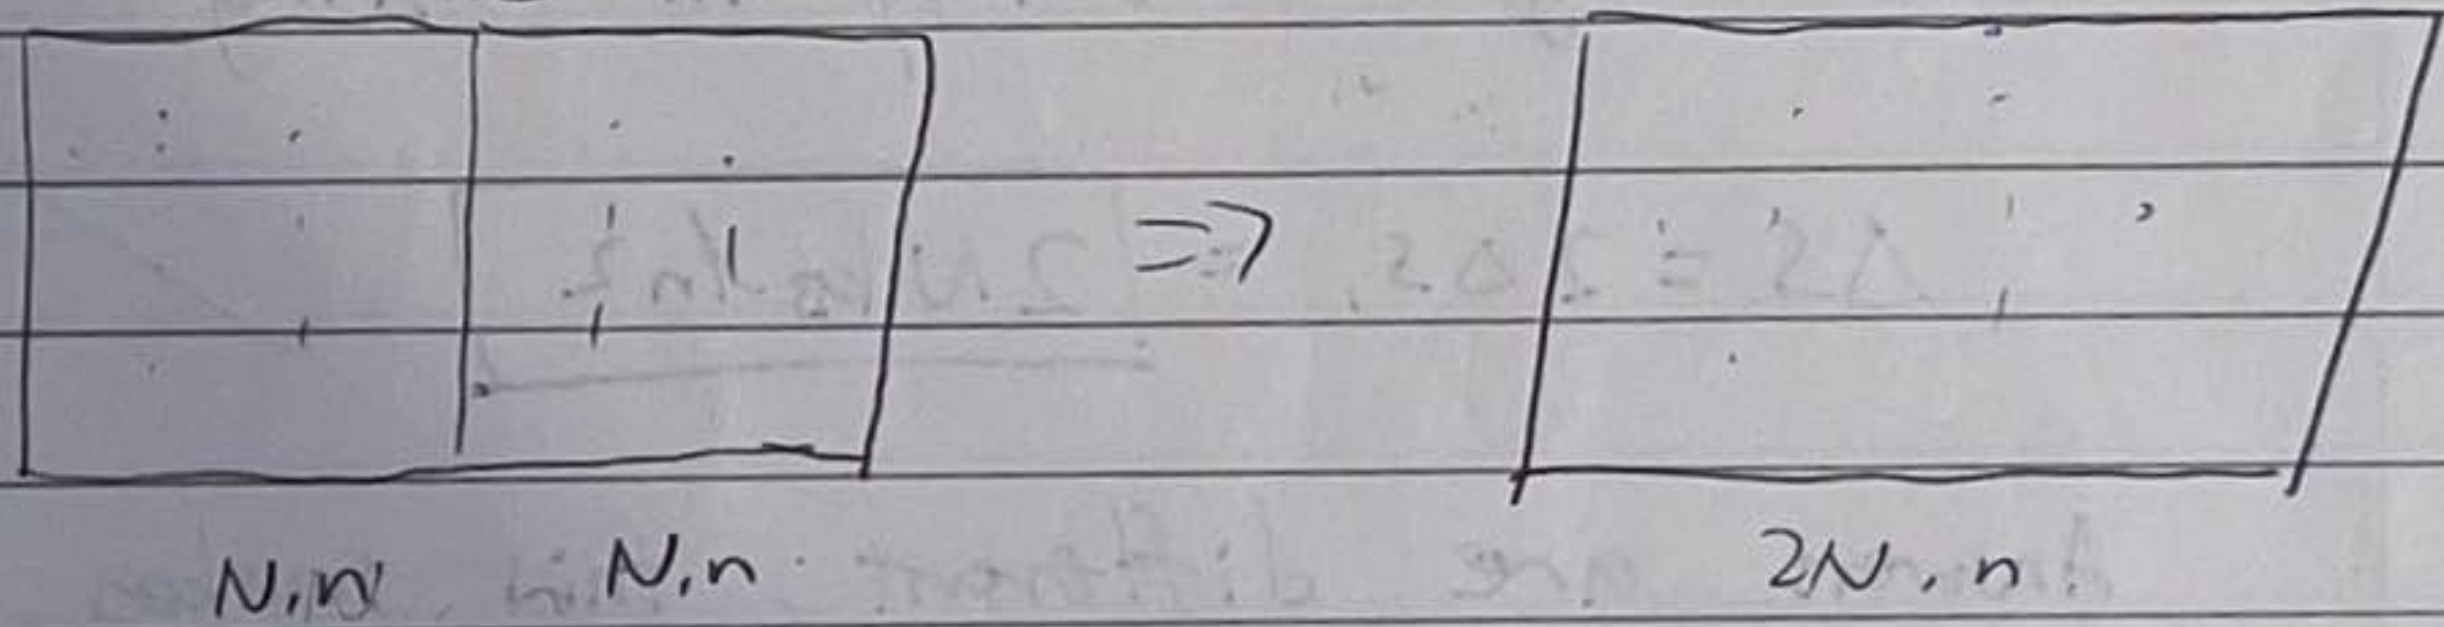 ⇒
N,n N,n 2N,n